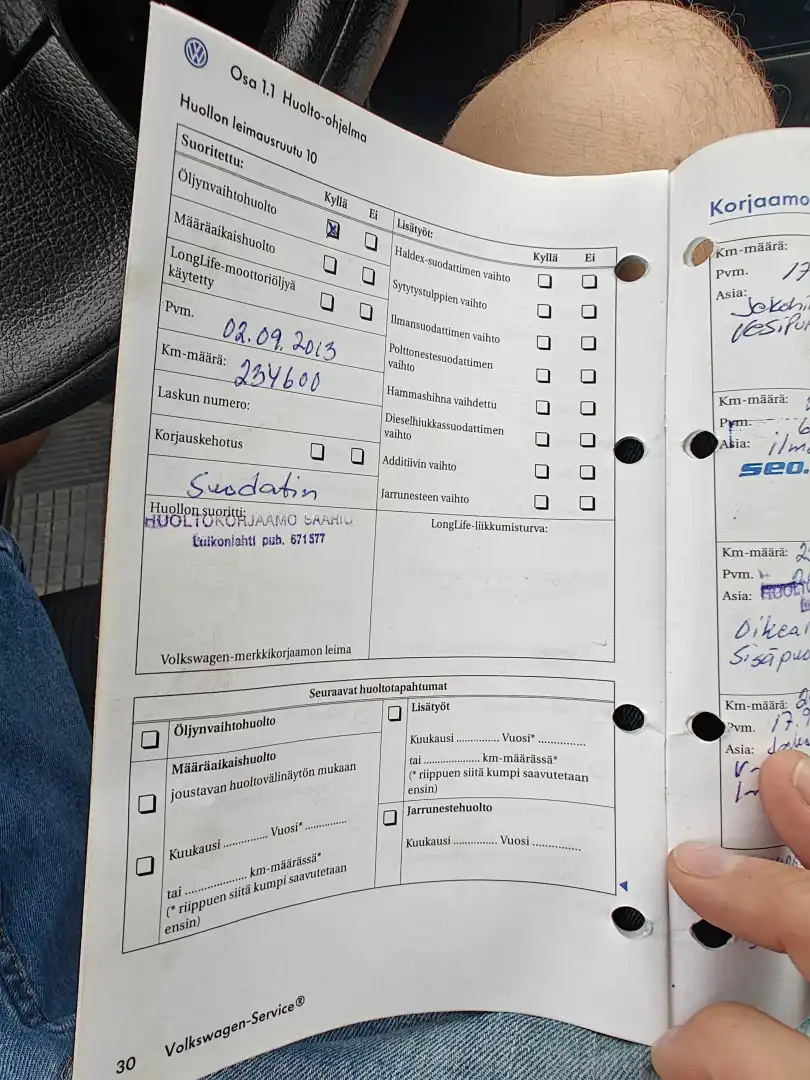 Osa 1.1 Huolto-ohjelma
Huollon leimausruutu 10
Suoritettu:
Kyllä Ei
Öljynvaihtohuolto
Määräaikaishuolto
LongLife-moottoriöljyä
käytetty
Pvm. 02.09.2013
Km-määrä: 234600
Laskun numero:
Korjauskehotus
Suodatin
Huollon suoritti:
HUOLTOKORJAAMO SAARIO
Luikonlahti puh. 671577
Volkswagen-merkkikorjaamon leima
Lisätyöt:
Kyllä Ei
Haldex-suodattimen vaihto
Sytytystulppien vaihto
Ilmansuodattimen vaihto
Polttonestesuodattimen
vaihto
Hammashihna vaihdettu
Dieselhiukkassuodattimen
vaihto
Additiivin vaihto
Jarrunesteen vaihto
LongLife-liikkumisturva:
Seuraavat huoltotapahtumat
Öljynvaihtohuolto
Määräaikaishuolto
joustavan huoltovälinäytön mukaan
Kuukausi .............. Vuosi* ..............
tai .................... km-määrässä*
(* riippuen siitä kumpi saavutetaan
ensin)
Lisätyöt
Kuukausi .............. Vuosi* ...............
tai .................... km-määrässä*
(* riippuen siitä kumpi saavutetaan
ensin)
Jarrunestehuolto
Kuukausi .............. Vuosi ................
30 Volkswagen-Service®
Korjaamo
Km-määrä:
Pvm. 17
Asia:
Km-määrä:
Pvm. 6
Asia:
seo.
Km-määrä: 2
Pvm.
Asia:
Oikea
Sisäpu
Km-määrä: 2
Pvm. 17.
Asia: